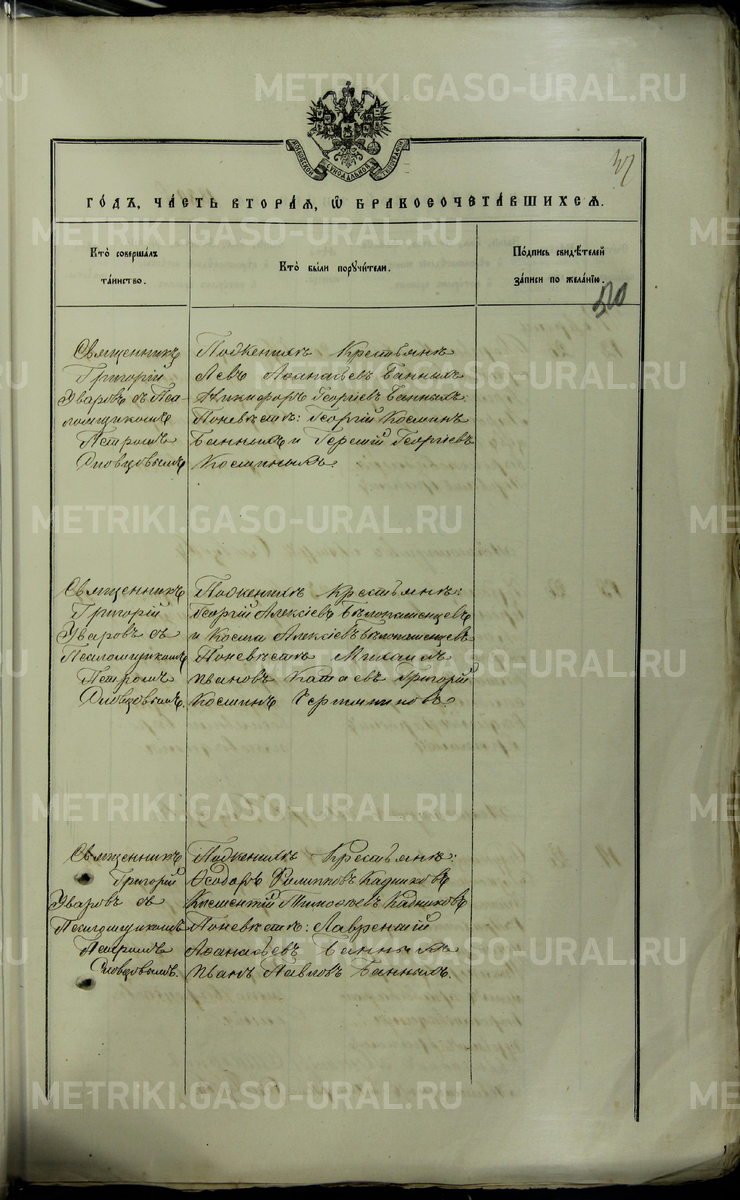 METRIKI.GASO-URAL.RU
37
ГО́ДЪ, ЧА́СТЬ ВТОРА́Я, Ѡ БРАКОСОЧЕТА́ВШИХСЯ.
Кто̀ совершалъ та́инство.
Кто̀ были пору́чители.
По́дпись свидѣ́телей за́писи по жела́нію.
520
Священникъ
Григорій
Уваровъ съ Пса-
ломщикомъ
Петромъ
Словцовымъ
Поженихѣ Крестьяне
Левъ Аѳанасьевъ Банныхъ
Никифоръ Георгіевъ Банныхъ
Поневѣстѣ: Георгій Космин
Банныхъ и Георгіевъ
Косминыхъ
Священникъ
Григорій
Уваровъ съ
Псаломщикомъ
Петромъ
Словцовымъ.
Поженихѣ Крестьяне:
Георгій Алексѣевъ Бѣлопашенцевъ
и Косма Алексѣевъ Бѣлопашенцевъ
Поневѣстѣ Михаилъ
Ивановъ Катаевъ Григорій
Косминъ
Священникъ
Григорій
Уваровъ съ
Псаломщикомъ
Петромъ
Словцовымъ.
Поженихѣ Крестьяне:
Ѳеодоръ Филипповъ Кадниковъ
Климентій Тимоѳеевъ Кадниковъ
Поневѣстѣ: Лаврентій
Аѳанасьевъ Банныхъ
Иванъ Павловъ Банныхъ.